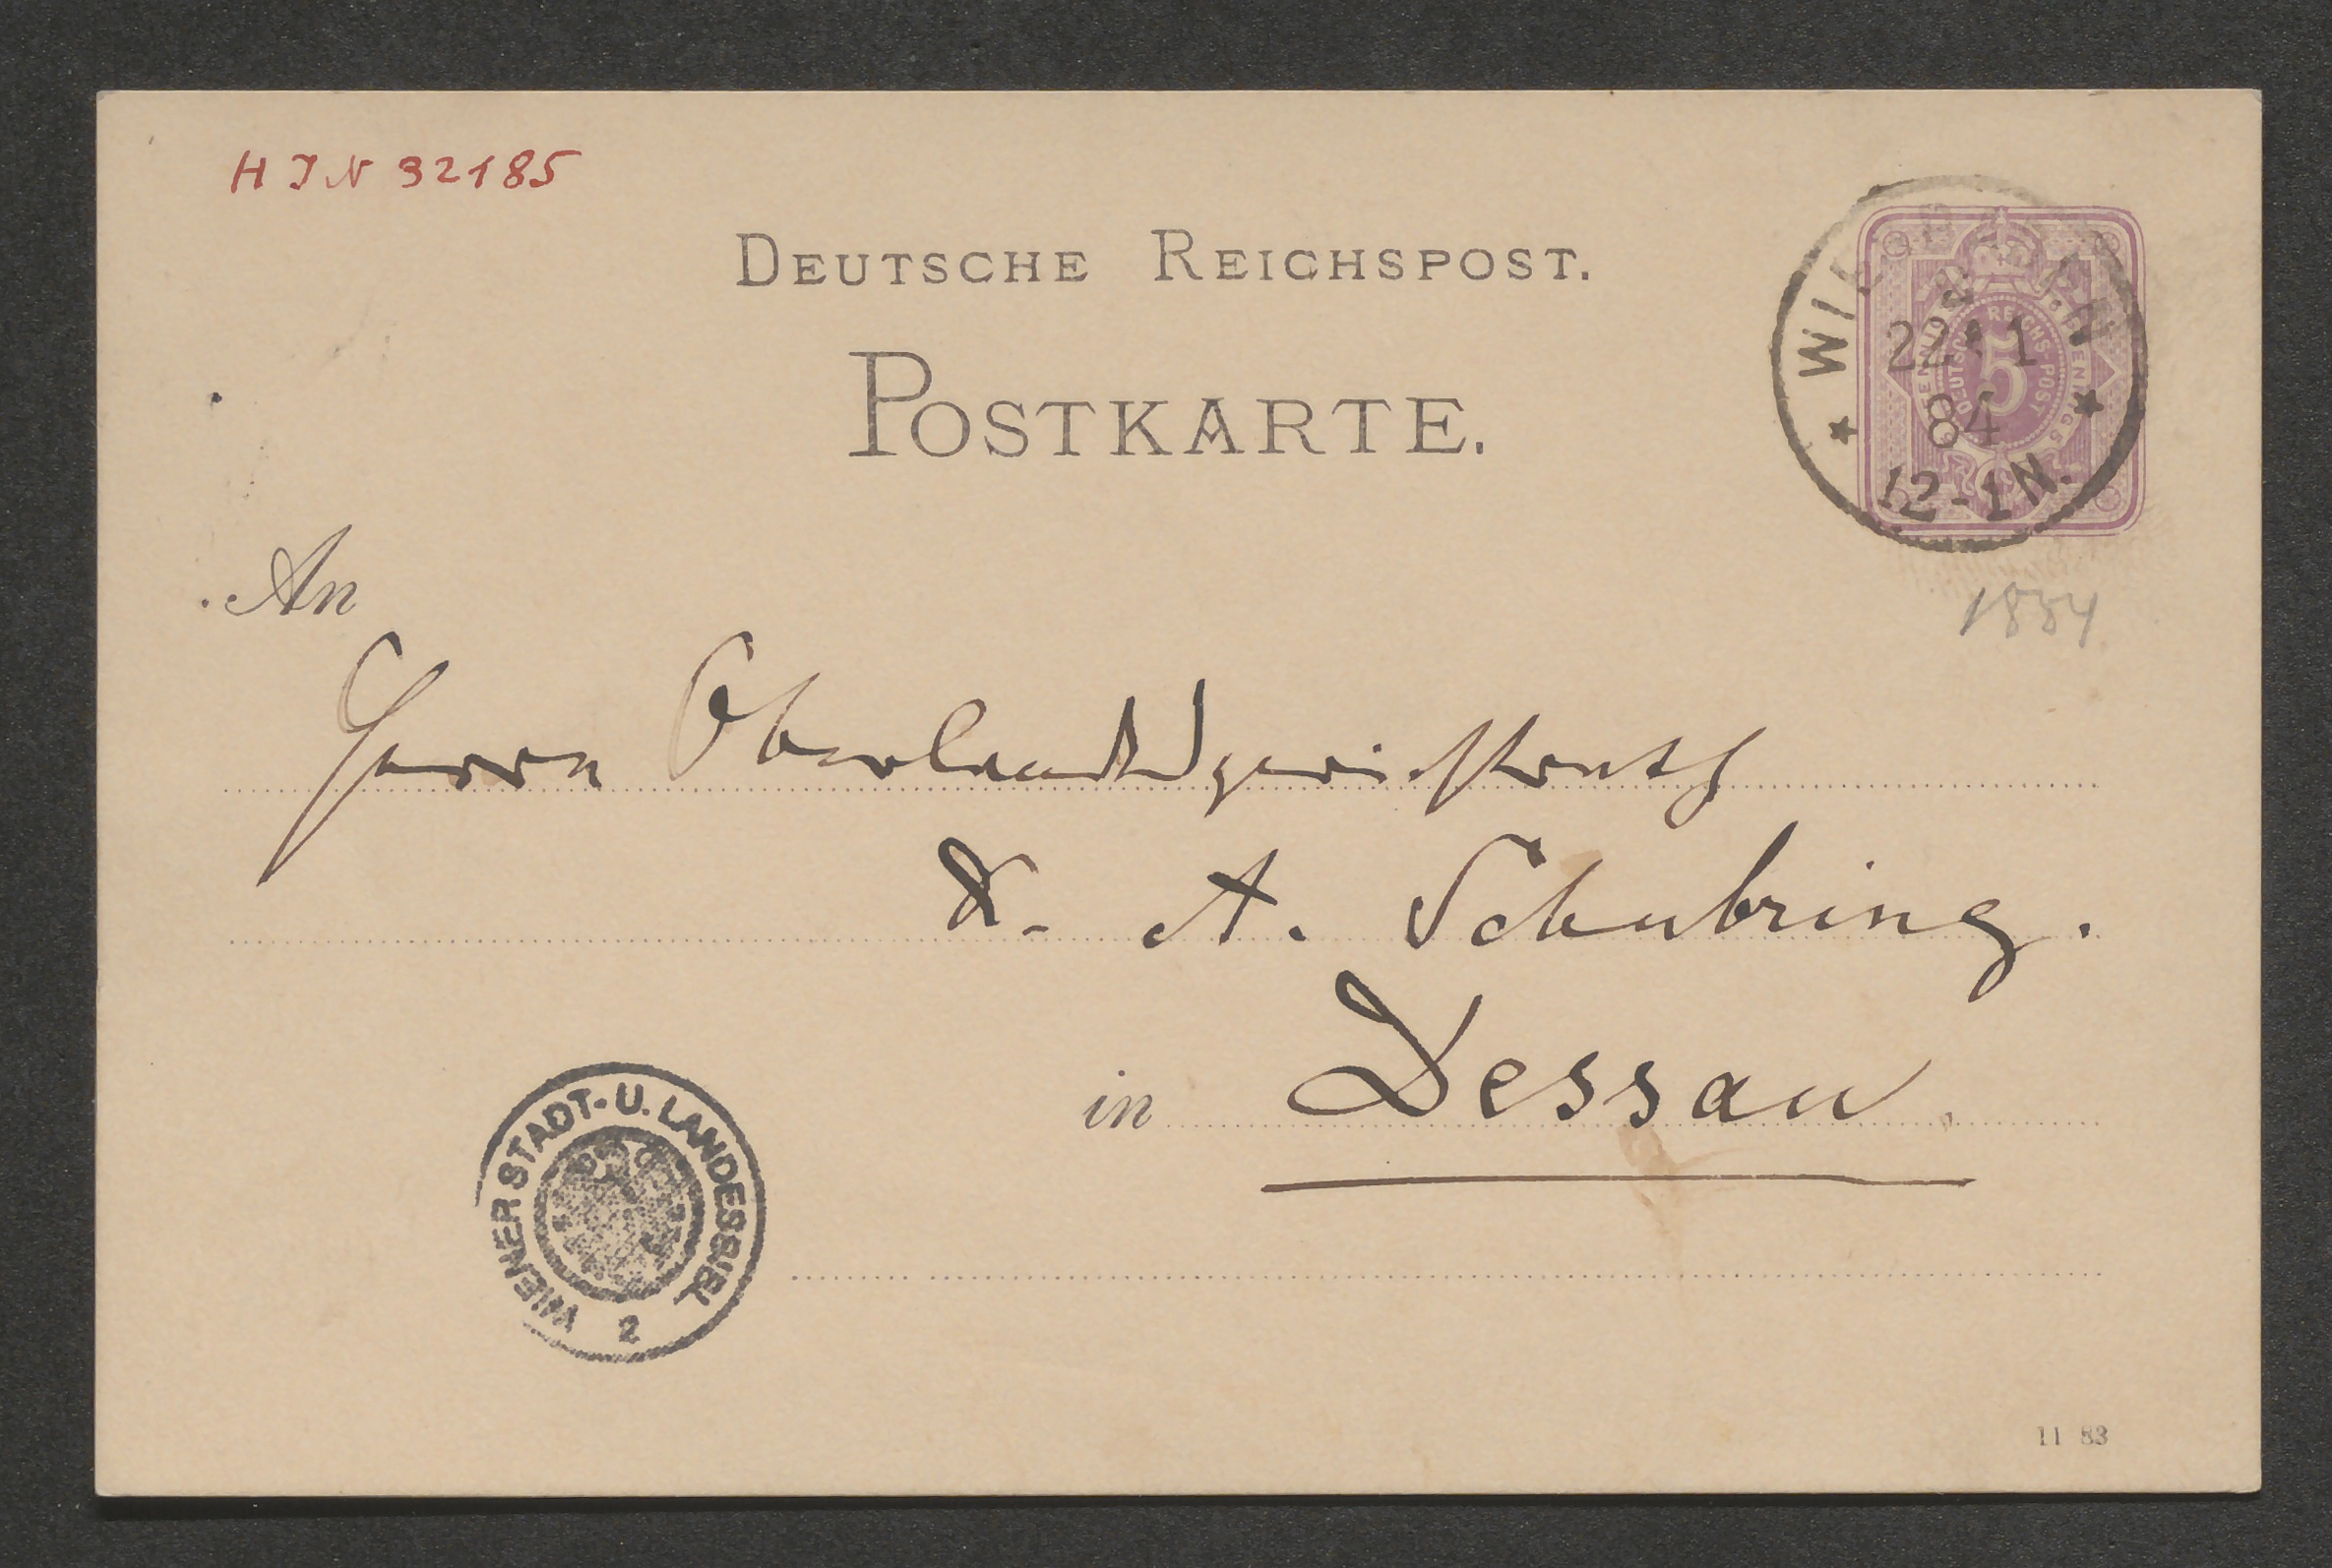 H I N 32185
DEUTSCHE REICHSPOST.
POSTKARTE.
WIESBADEN
22 1
84
12-1N.
DEUTSCHE REICHS-POST
5
1884
An
Herrn Oberlandsgerichtsrath
Dr. A. Schubring.
in Dessau.
WIENER STADT- U. LANDESBIBL.
2
11 83